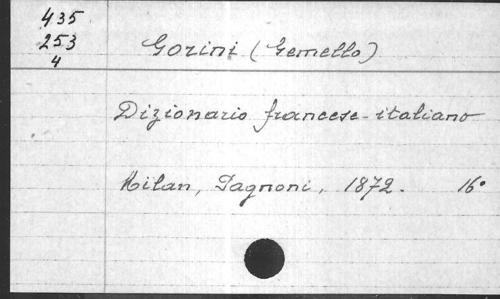 435
253
4
Gorini (Gemello)
Dizionario francese-italiano
Milan, Pagnoni, 1872. 16°